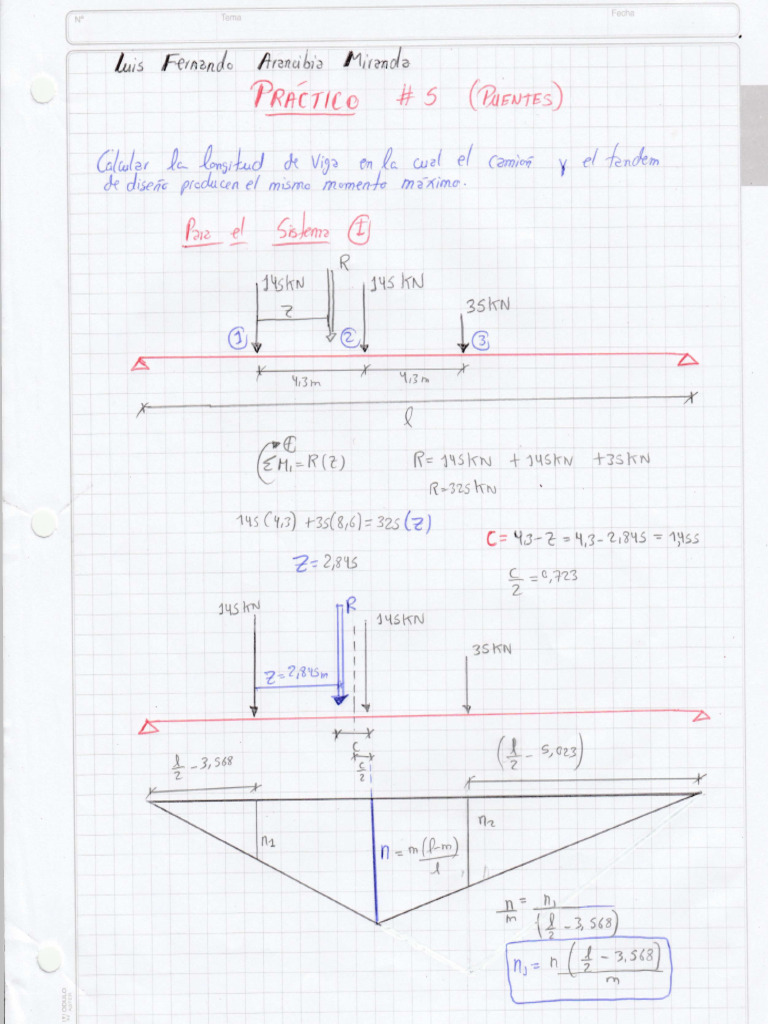 Nº Tema Fecha
Luis Fernando Arancibia Miranda
PRÁCTICO # 5 (PUENTES)
Calcular la longitud de viga en la cual el camión y el tandem
de diseño producen el mismo momento máximo.
Para el Sistema I
R
145KN 145 KN
Z
35KN
1 2 3
4,3m 4,3m
l
ΣM₁=R(Z) R= 145KN +145KN +35KN
R=325KN
145(4,3) +35(8,6)=325(Z)
C= 4,3-Z = 4,3-2,845 = 1,455
Z=2,845
c/2 = 0,723
145KN R 145KN
35KN
Z=2,845m
c
c/2
l/2 - 3,568 (l/2 - 5,023)
n1 n2
n = m(l-m)/l
n/m = n1/(l/2 - 3,568)
n1 = n (l/2 - 3,568)/m